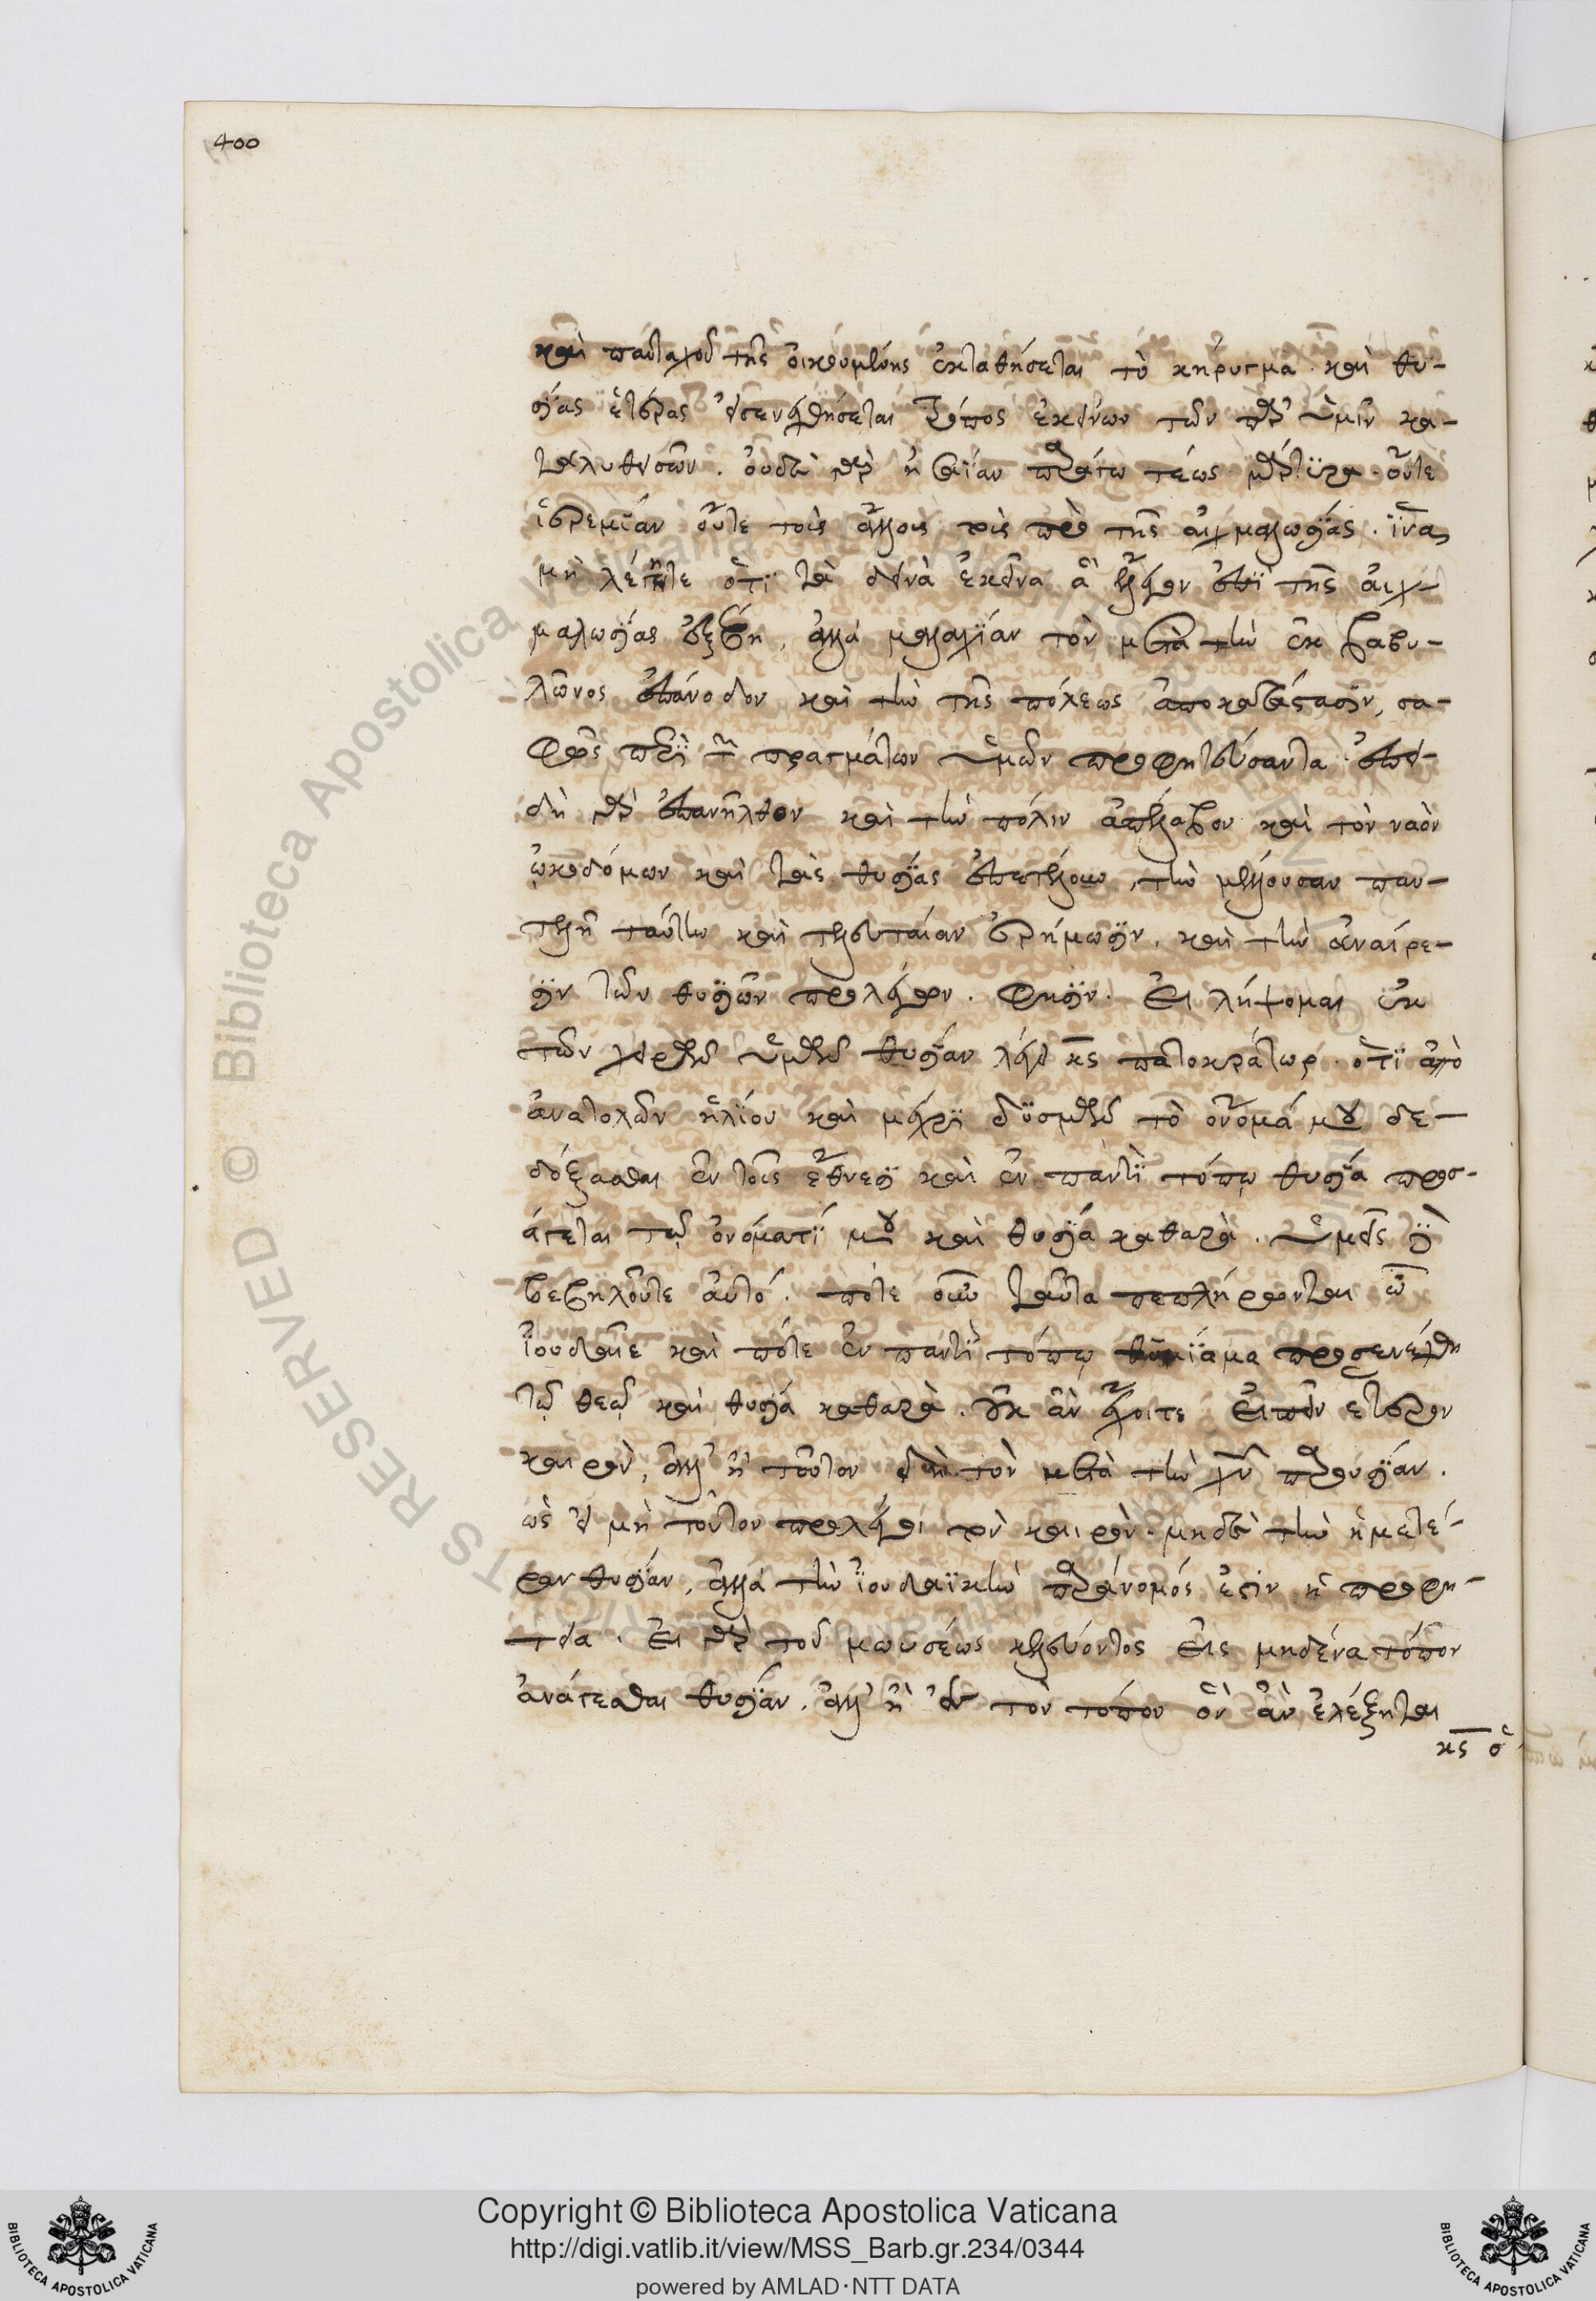 400
καὶ πανταχοῦ τῆς οἰκουμένης ἐκταθήσεται τὸ κήρυγμα. καὶ θυ-
σίας ἑτέρας εἰσενεχθήσεται τρόπος ἐκείνων τῶν παρ' ὑμῖν κα-
ταλυθεισῶν. οὐδὲ γὰρ ἡσαΐαν παράγω τέως μάρτυρα. οὔτε
ἱερεμίαν οὔτε τοὺς ἄλλους τοὺς πρὸ τῆς αἰχμαλωσίας. ἵνα
μὴ λέγητε ὅτι τὰ δεινὰ ἐκεῖνα ἃ ἔλεγον ἐπὶ τῆς αἰχ-
μαλωσίας ἐξέβη, ἀλλὰ μαλαχίαν τὸν μετὰ τὴν ἐκ βαβυ-
λῶνος ἐπάνοδον καὶ τὴν τῆς πόλεως ἀποκατάστασιν, σα-
φῶς περὶ τῶν πραγμάτων ὑμῶν προφητεύσαντα. ἐπει-
δὴ γὰρ ἐπανῆλθον καὶ τὴν πόλιν ἀπέλαβον καὶ τὸν ναὸν
ᾠκοδόμων καὶ τὰς θυσίας ἐπετέλουν, τὴν μέλλουσαν παν-
τελῆ ταύτην καὶ τελευταίαν ἐρήμωσιν. καὶ τὴν ἀναίρε-
σιν τῶν θυσιῶν προλέγων. φησίν. Εἰ λήψομαι ἐκ
τῶν χειρῶν ὑμῶν θυσίαν λέγει κς παντοκράτωρ. ὅτι ἀπὸ
ἀνατολῶν ἡλίου καὶ μέχρι δυσμῶν τὸ ὄνομά μου δε-
δόξασται ἐν τοῖς ἔθνεσι καὶ ἐν παντὶ τόπῳ θυσία προσ-
άγεται τῷ ὀνόματί μου καὶ θυσία καθαρὰ. ὑμεῖς δὲ
βεβηλοῦτε αὐτό. πότε οὖν ταῦτα πεπλήρωνται ὦ
ἰουδαῖε καὶ πότε ἐν παντὶ τόπῳ θυμίαμα προσενέχθη
τῷ θεῷ καὶ θυσία καθαρὰ. οὐκ ἂν ἔχοιτε εἰπεῖν ἕτερον
καιρὸν, ἀλλ' ἢ τοῦτον δὴ τὸν μετὰ τὴν χυ παρουσίαν.
ὡς εἰ μὴ τοῦτον προλέγει τὸν καιρὸν. μηδὲ τὴν ἡμετέ-
ραν θυσίαν, ἀλλὰ τὴν ἰουδαϊκὴν παράνομός ἐστιν ἡ προφη-
τεία. Εἰ γὰρ τοῦ μωυσέως κελεύοντος εἰς μηδένα τόπον
ἀνάγεσθαι θυσίαν. ἀλλ' ἢ εἰς τὸν τόπον ὃν ἂν ἐλέξηται
κς ὁ
Copyright © Biblioteca Apostolica Vaticana
http://digi.vatlib.it/view/MSS_Barb.gr.234/0344
powered by AMLAD·NTT DATA